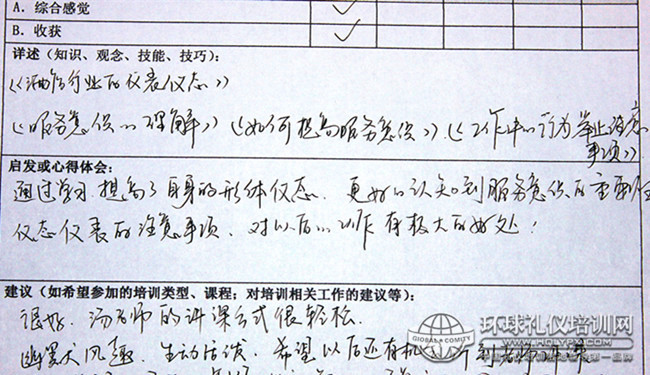 A. 综合感觉 ✓
B. 收获 ✓
详述（知识、观念、技能、技巧）：
《酒店行业的仪表仪态》
《服务意识的理解》《如何提高服务意识》《工作中的行为举止注意
事项》
启发或心得体会：
通过学习.提高了自身的形体仪态.更好的认知到服务意识的重要性
仪态仪表的注意事项、对以后的工作有极大的好处！
建议（如希望参加的培训类型、课程；对培训相关工作的建议等）：
很好.汤老师的讲课方式很轻松.
幽默风趣.生动活泼.希望以后还有机
环球礼仪培训网
GLOBAL & COMITY